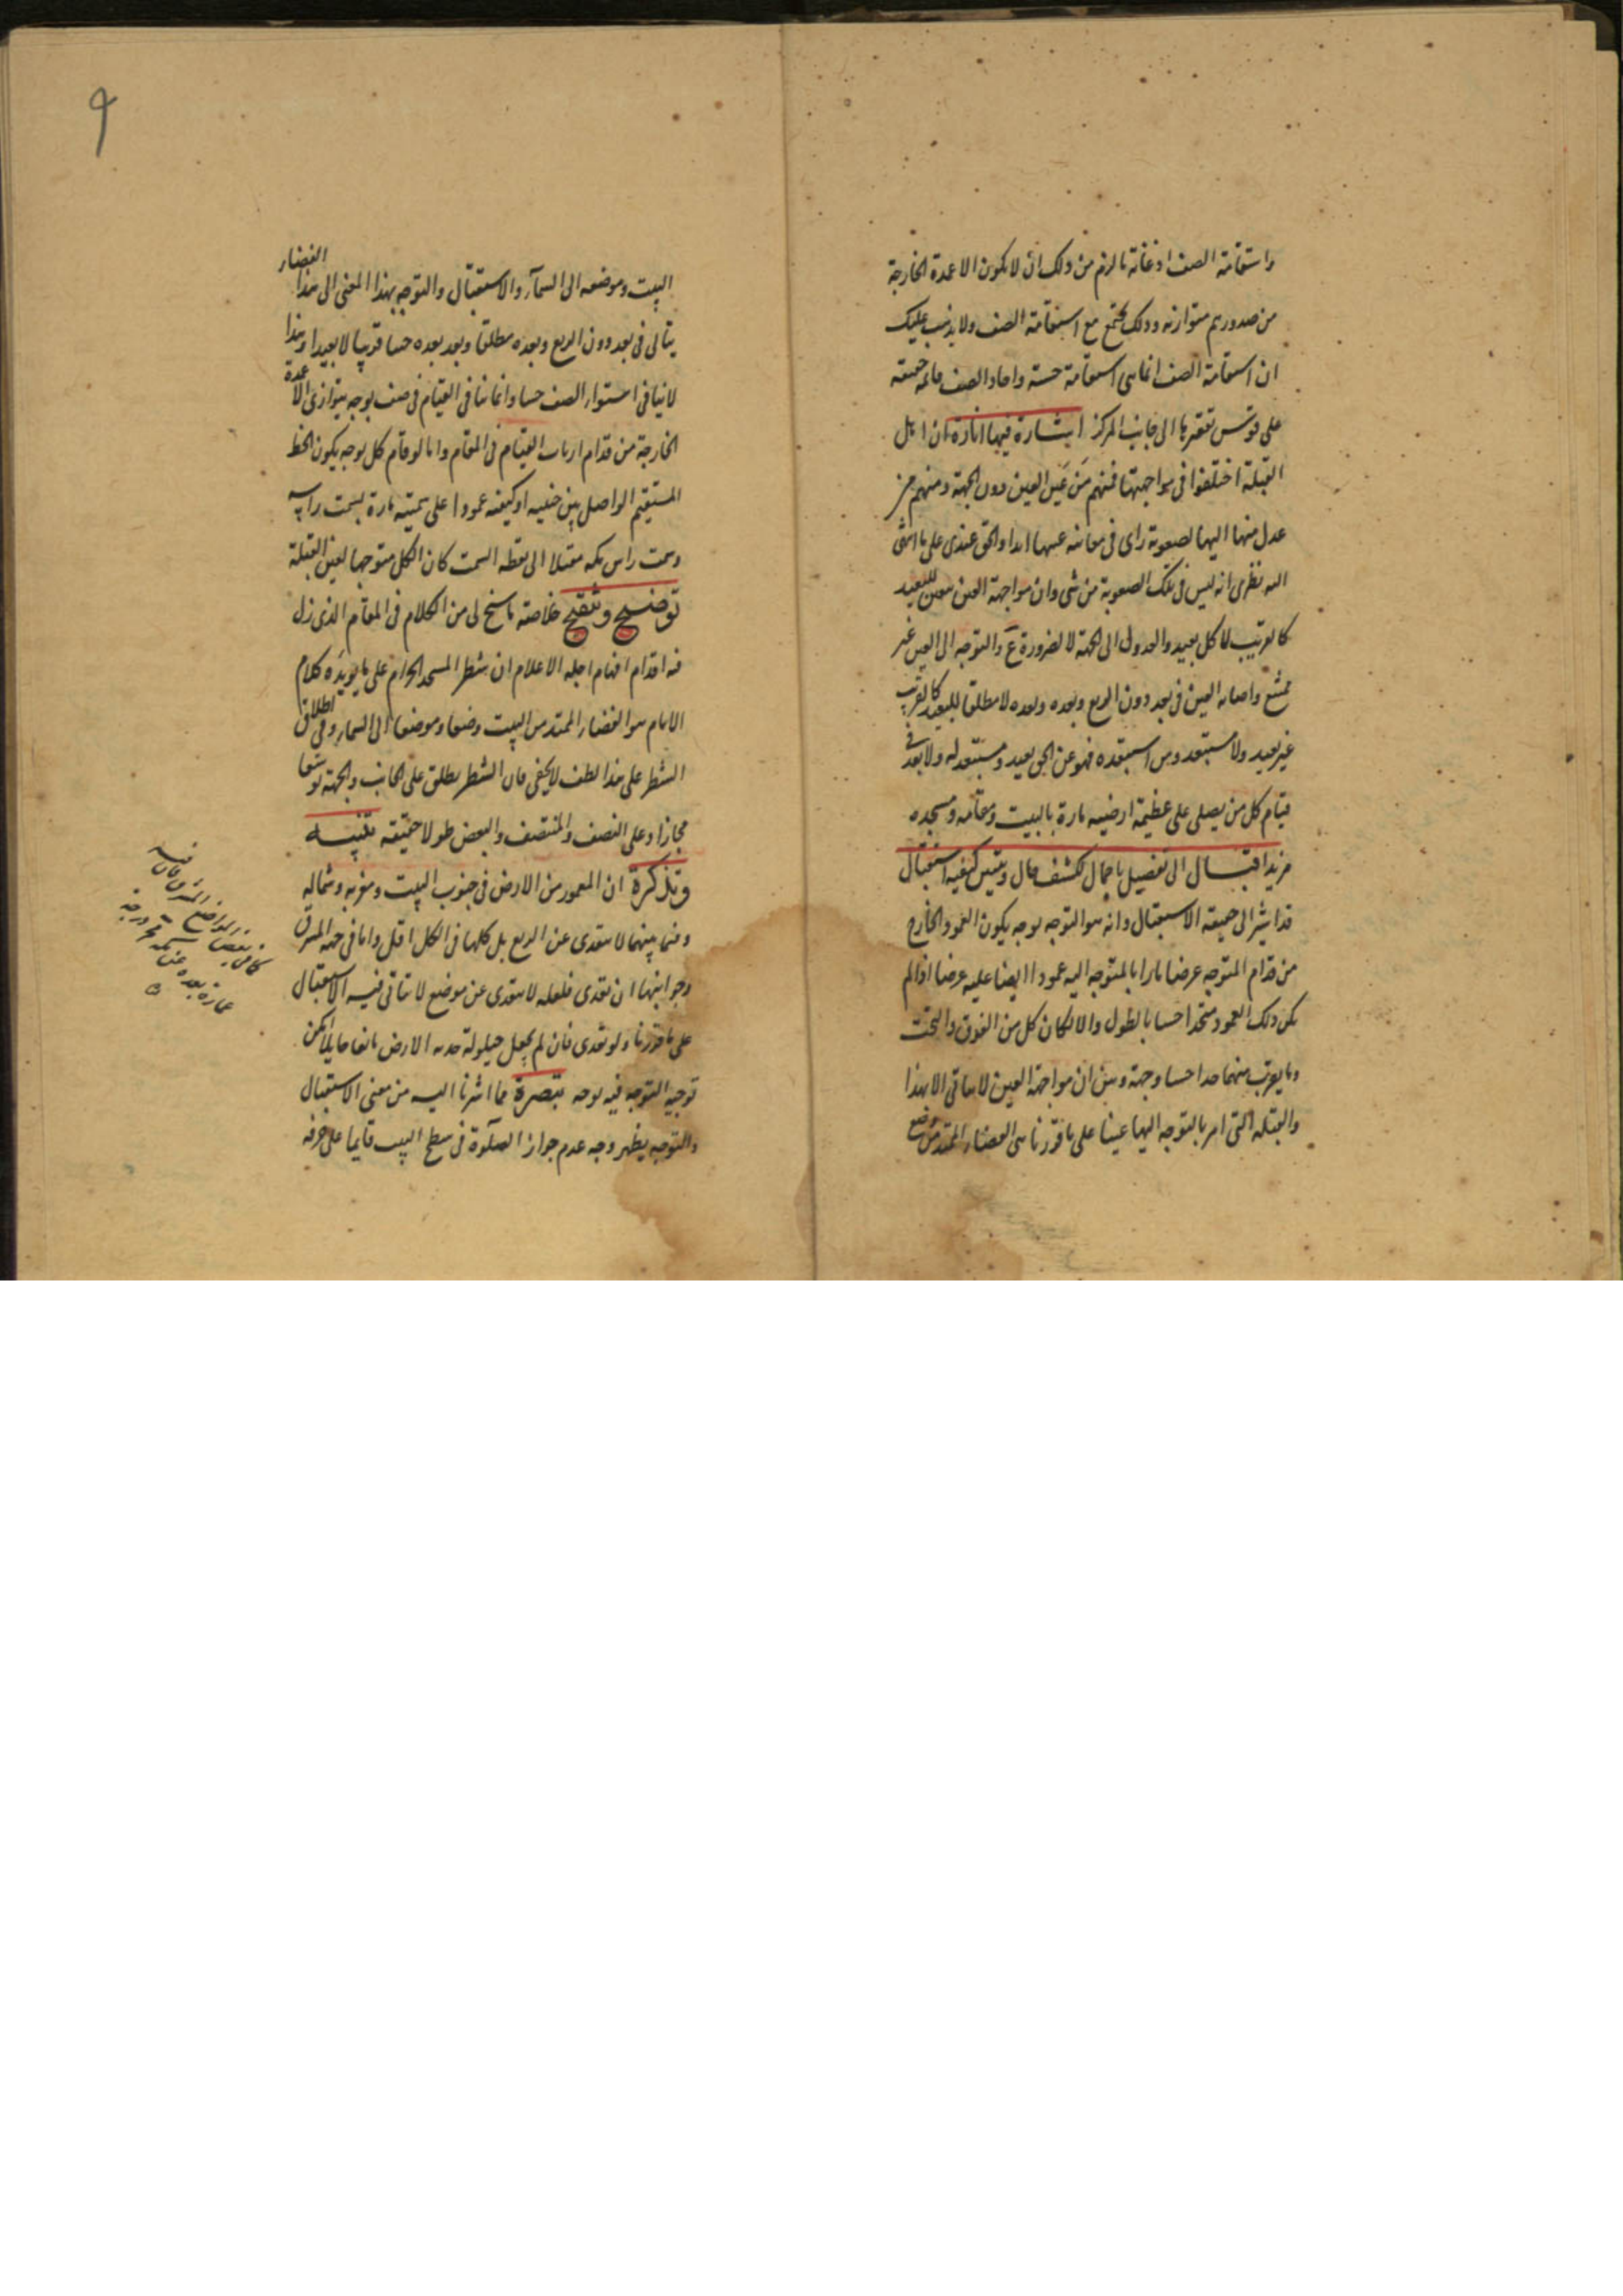 واستقامة الصف اذ غاية ما لزم من ذلك ان لا يكون الاعمدة الخارجة
من صدورهم متوازية وذلك يجتمع مع استقامة الصف ولا يذهب عليك
ان استقامة الصف انما هى استقامة حسية واحاد الصف قائمة حقيقة
على قوس تقعيرها الى جانب المركز اشارة فيها انارة ان اهل
القبلة اختلفوا فى مواجهتها فمنهم من عين العين دون الجهة ومنهم من
عدل منها اليها لصعوبة راى فى معاينة عينها ابدا والحق عندى على ما انتهى
اليه نظرى انه ليس فى تلك الصعوبة من شى وان مواجهة العين للبعيد
كالقريب لا كل بعيد والعدول الى الجهة لا لضرورة والتوجه الى العين غير
ممتنع واصابة العين فى بعد دون الربع وبعده وبعده لا مطلقا للبعيد كالقريب
غير بعيد ولا مستبعد ومن استبعده فهو عن الحق بعيد ومستبعد له ولا بعد فى
قيام كل من يصلى على عظيمة ارضية مارة بالبيت ومقامه ومسجده
مزيد اقبال الى تفصيل باجمال لكشف حال وتبيين كيفية استقبال
قد اشير الى حقيقة الاستقبال وانه هو التوجه بوجه يكون العمود الخارج
من قدام المتوجه عرضا مارا بالمتوجه اليه عمودا ايضا عليه عرضا اذا لم
يكن ذلك العمود متحدا حسا بالطول والا لكان كل من الفوق والتحت
وما يقرب منهما حدا حسا وجهة وبين ان مواجهة العين لا يتاتى الا بهذا
والقبلة التى امر بالتوجه اليها عينا على ما قررنا هى الفضاء الممتد من موضع
البيت وموضعه الى السمآء والاستقبال والتوجه بهذا المعنى الى هذا الفضاء
يتاتى فى بعد دون الربع وبعده مطلقا وبعد بعده حسا قريبا لا بعيدا وهذا
لا ينافى استواء الصف حسا وانما ينافى القيام فى صف بوجه يتوازى الاعمدة
الخارجة من قدام ارباب القيام فى المقام واما لو قام كل بوجه يكون الخط
المستقيم الواصل بين جنبيه او كتفيه عمودا على سمتية مارة بسمت راسه
وسمت راس مكه مقبلا الى نقطة السمت كان الكل متوجها لعين القبلة
توضيح وتنقيح خلاصة ما سنح لى من الكلام فى المقام الذى زل
فيه اقدام افهام اجله الاعلام ان شطر المسجد الحرام على ما يويده كلام
الامام هو الفضاء الممتد من البيت وضعا وموضعا الى السماء وفى اطلاق
الشطر على هذا لطف لا يخفى فان الشطر يطلق على الجانب والجهة توسعا
مجازا وعلى النصف والمنتصف والبعض طولا حقيقة تنبيه
وتذكرة ان المعمور من الارض فى جنوب البيت وغربه وشماله
وفيما بينهما لا يتعدى عن الربع بل كلها فى الكل اقل واما فى جهة المشرق
وجوانبها ان تعدى فلعله لا يتعدى عن موضع لا يتاتى فيه الاستقبال
على ما قررنا ولو تعدى فان لم يجعل حيلولة حدبة الارض مانعا حايلا يمكن
توجيه التوجه فيه بوجه تبصرة مما اشرنا اليه من معنى الاستقبال
والتوجه يظهر وجه عدم جواز الصلوة فى سطح البيت قايما على حرفه